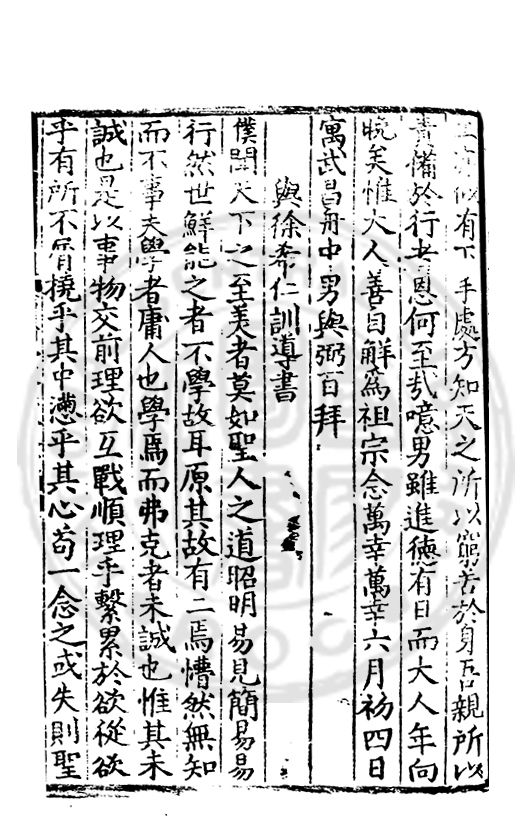 有下手處方知天之所以窮苦於身吾親所以
責備於行者恩何至哉噫男雖進德有日而大人年向
晚矣惟大人善自解爲祖宗念萬幸萬幸六月初四日
寓武昌舟中男與弼百拜
與徐希仁訓導書
僕聞天下之至美者莫如聖人之道昭明易見簡易易
行然世鮮能之者不學故耳原其故有二焉懵然無知
而不事夫學者庸人也學焉而弗克者未誠也惟其未
誠也是以事物交前理欲互戰順理乎繫累於欲從欲
乎有所不屑撓乎其中懣乎其心苟一念之或失則聖